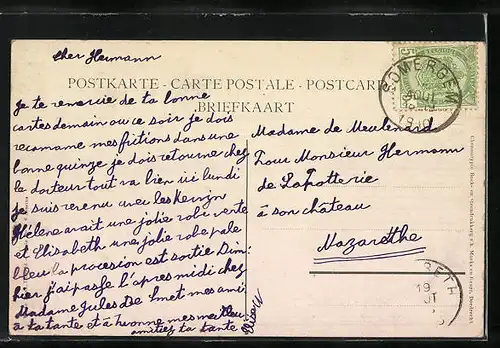 cher Hermann
POSTKARTE - CARTE POSTALE - POSTCARD
BRIEFKAART
je te remercie de ta bonne
cartes demain ou ce soir je dois
mes fictions dans une
bonne quinze je dois retourne chez
le docteur tout va bien ici lundi
je suis revenu avec les
Hélène avait une jolie robe verte
et Elisabeth une jolie robe pale
bleu la procession est sortie Dim.
hier j'ai passé l'apres midi chez
Madame Jules De Smet mes ami
a ta tante et à Ivonne mes meilleu
amitiez ta tante
Madame de Meulenard
Pour Monsieur Hermann
de La Potterie
à son château
Nazarethe
SOMERGEM
AOUT
1910
BELGIQUE
5
RETH
19